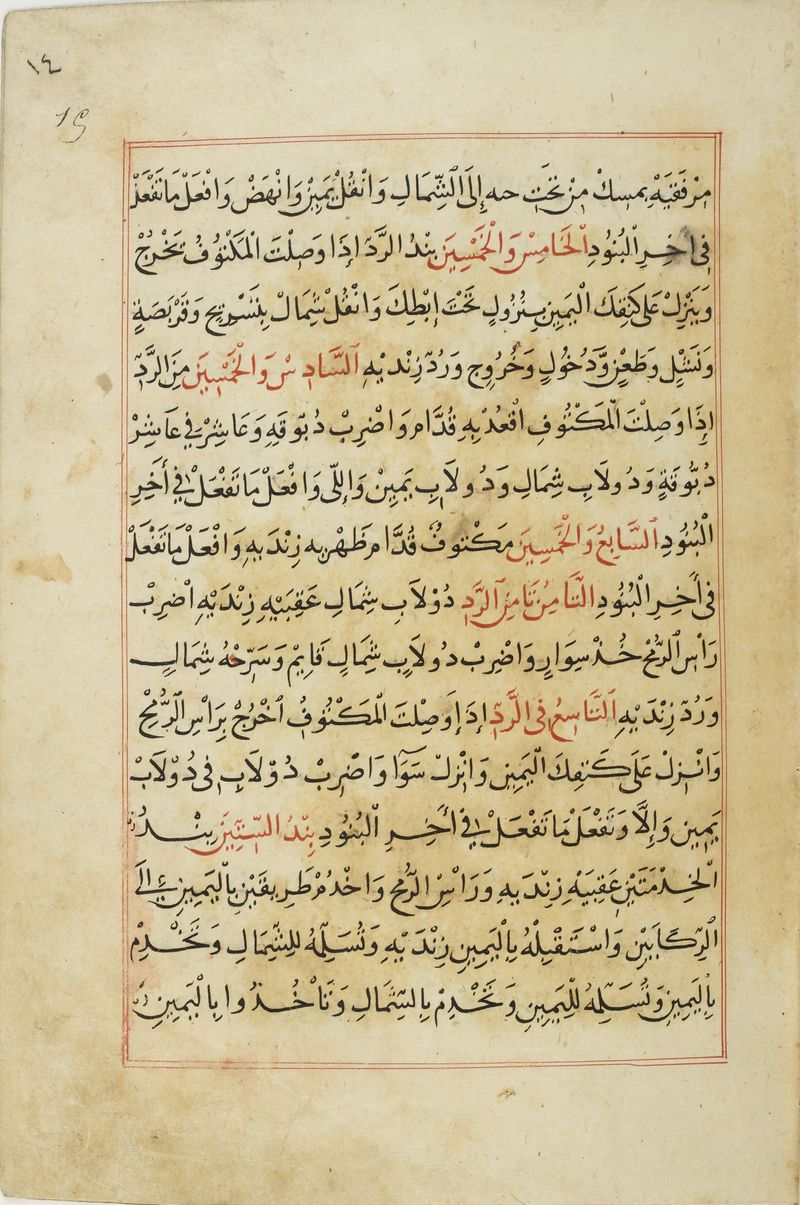 ١٤
15
مِرْفَقَيْهِ يمسِكْ مِنْ تَحْتِ حـه إِلَى الشِّمَالِ وَانْقُلْ يَمِيْنْ وَانْهَضْ وَافْعَلْ مَا تَفْعَلْ
فِي اٰخِرِ الْبُنُودِ الْخَامِسْ وَالْخَمْسِيَن بَنْدُ الرَّدّ إِذَا وَصِلْتَ الْمَكْتُوْفُ تَخْرُجْ
وَيَنْزِلْ عَلَى كَتِفِكَ الْيَمِيْنِ بِنُزُولٍ تَحْتَ إِبْطِكَ وَانْقُلْ شِمَالْ بِتَسْرِيْحٍ وَقَرْبَصَةٍ
وَنَشْلٍ وَطَعْنٍ وَّدُخُولٍ وَخُرُوجٍ وَرُدّ زَنْدَيْهِ السَّادِسْ وَالْخَمْسِيَن مِنَ الرَّدِّ
إِذَا وَصِلْتَ الْمَكْتُوفِ اقْعُدْ بِهِ قُدَّام وَاضْرِبْ دُبّوقَهِ وَعَاشِرْ فِي عَاشِرْ
دُبُّوقَةٍ وَدُولَابِ شِمَالِ وَدُولَابِ يَمِيْنْ وَإِللّٰى وَافْعَلْ مَا تَفْعَلْ فِي أَخِرِ
الْبُنُودِ السَّابِعُ وَالْخَمْسِيَن مَكْتوفُ قُدَّام ظَهْرِه زِنْدَيهِ وَافْعَلْ مَا تَفْعَلْ
فِي أَخِرِ الْبُنُودِ الثَّامِنُ مِنَ الرَّدِ دُوْلَابِ شِمَالِ عَقِبَيْهِ زِنْدَيْهِ اضْرِبْ
رَاْسِ الرُّمْحْ خُذْ سِوَارٍ وَاضْرِبْ دُولَابِ شِمَالٍ قَايِمْ وَسَرِّحْهُ شِمَالِ
وَرُدّ زِنْدَيْهِ التَّاسِعُ فِي الرَّدِّ إِذَا وَصِلْتَ الْمَكْتُوفُ اخْرُجْ بِرَاْسِ الرُّمْحْ
وَانْزِلْ عَلَى كَتِفِكَ الْيَمِيْنِ وَانْزِلْ سَوَآ وَاضْرِبْ دُوْلَابِ فِي دُوْلَابْ
يَمِيْنِ وَإِلَّا وَتَفْعَلْ مَا تَفْعَلْ فِي أَخِرِ الْبُنُودِ بَنْدُ السِّتِّيَن بَنْدُ
الْخِدْمَتَيْنِ عَقِبَيْهِ زِنْدَيهِ وَرَاْسُ الرُّمْحِ وَاخْدُمْ طَرِيقَيْنِ بِالْيَمِيْنِ إِلَى
الرِّكَابَيْنِ وَاسْتَقْبِلْهُ بِالْيَمِيْنِ زِنْدَيْهِ وَتُسَلِّمُهُ لِلشِّمَالِ وَتَخْدِمْ
بِالْيَمِيْنِ وَتُسَلِّمهُ لِلْيَمِيْنِ وَتَخْدِمْ بِالشِّمَالِ وَتَأْخُذُوا بِالْيَمِيْنِ